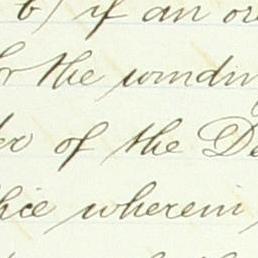 b) if an or
for the windin
of the De
wherein